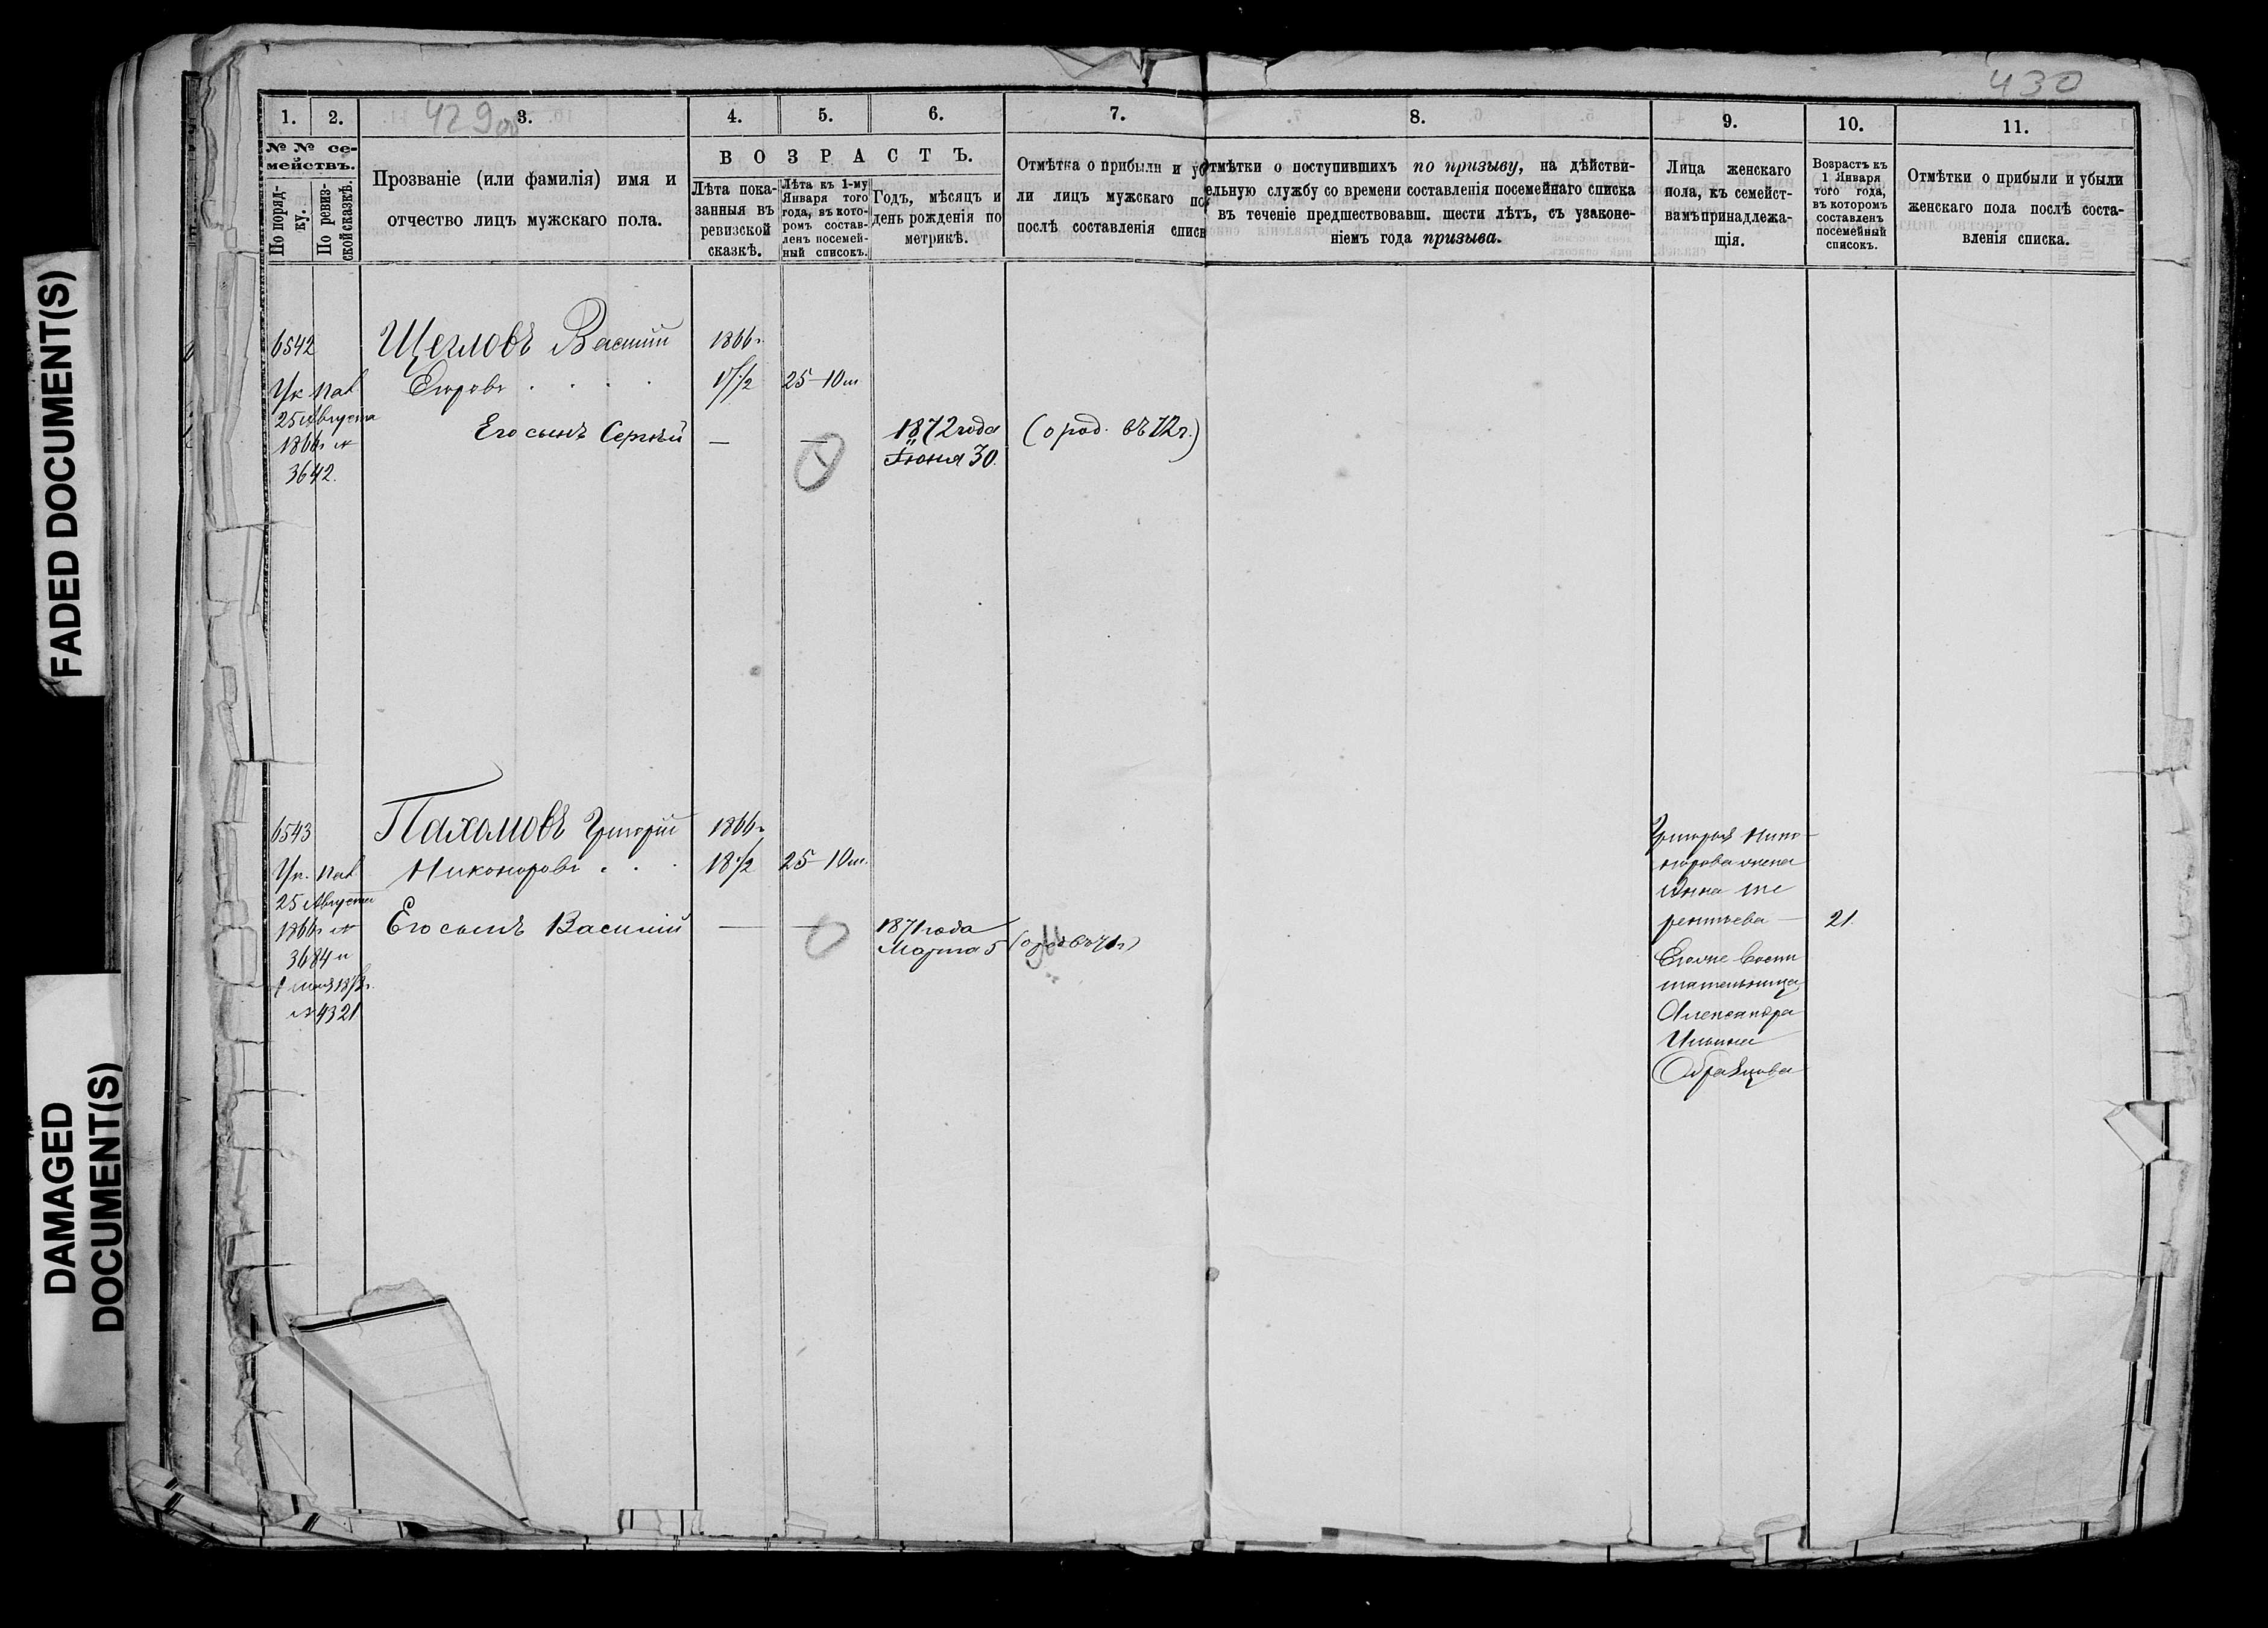 FADED DOCUMENT(S)
DAMAGED
DOCUMENT(S)
429об
430
1.
2.
3.
4.
5.
6.
7.
8.
9.
10.
11.
№ № се-
мействъ.
По поряд-
ку.
По ревиз-
ской сказкѣ.
Прозваніе (или фамилія) имя и
отчество лицъ мужскаго пола.
ВОЗРАСТЪ.
Лѣта пока-
занныя въ
ревизской
сказкѣ.
Лѣта къ 1-му
Января того
года, въ кото-
ромъ состав-
ленъ посемей-
ный списокъ.
Годъ, мѣсяцъ и
день рожденія по
метрикѣ.
Отмѣтка о прибыли и уб
ли лицъ мужскаго по
послѣ составленія списк
отмѣтки о поступившихъ по призыву, на дѣйстви-
ельную службу со времени составленія посемейнаго списка
въ теченіе предшествовавш. шести лѣтъ, съ узаконе-
ніемъ года призыва.
Лица женскаго
пола, къ семейст-
вамъ принадлежа-
щія.
Возрастъ къ
1 Января
того года,
въ которомъ
составленъ
посемейный
списокъ.
Отмѣтки о прибыли и убыли
женскаго пола послѣ соста-
вленія списка.
6542
Щегловъ Василій
1866г.
Ук. Пал
Егоровъ
17 1/2
25-10м
25 Августа
1866г №
3642.
Его сынъ Сергѣй
—
—
1872 года
Іюня 30.
(о род. въ 72г.)
6543
Пахомовъ Григорій
1866г
Ук. Пал
Никоноровъ
18 1/2
25-10м.
25 Августа
1866г №
3684 и
№ 4321
Его сынъ Василій
—
—
1871 года
Марта 5
(о род въ 71г)
Григорья Нико-
норова жена
Анна Те
рентьева —
21
Его же воспи
тательница
Александра
Ильина
Образцова